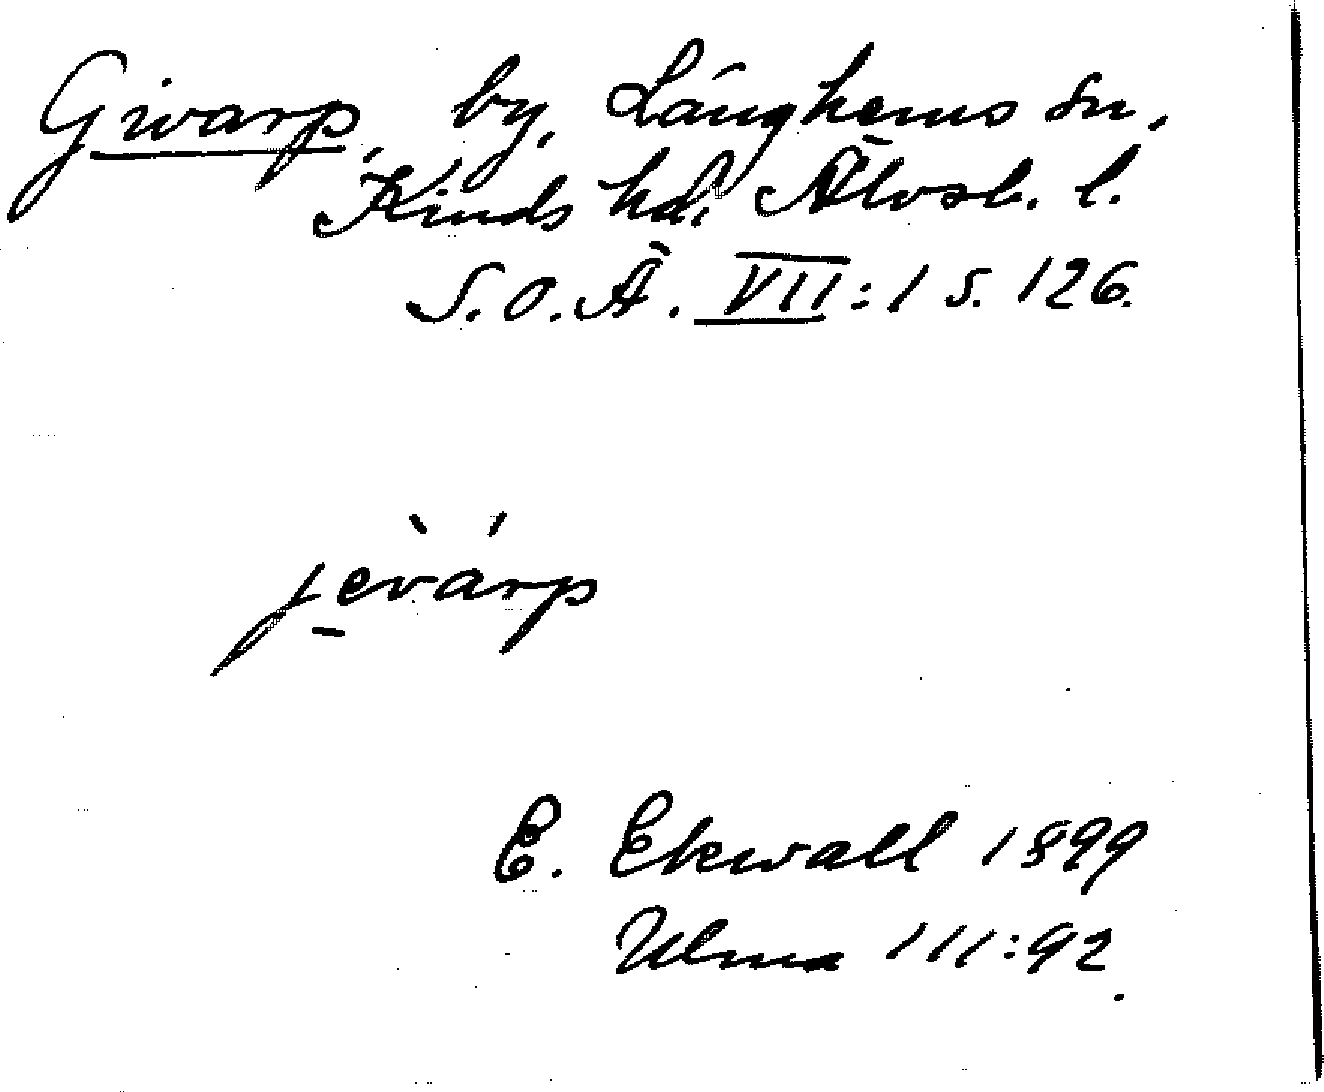 Givarp, by, Länghems sn,
Kinds hd. Älvsb. l.
S.O.Ä. VII:1 s. 126.
jèvárp
E. Ekwall 1899
Ulma 111:92.